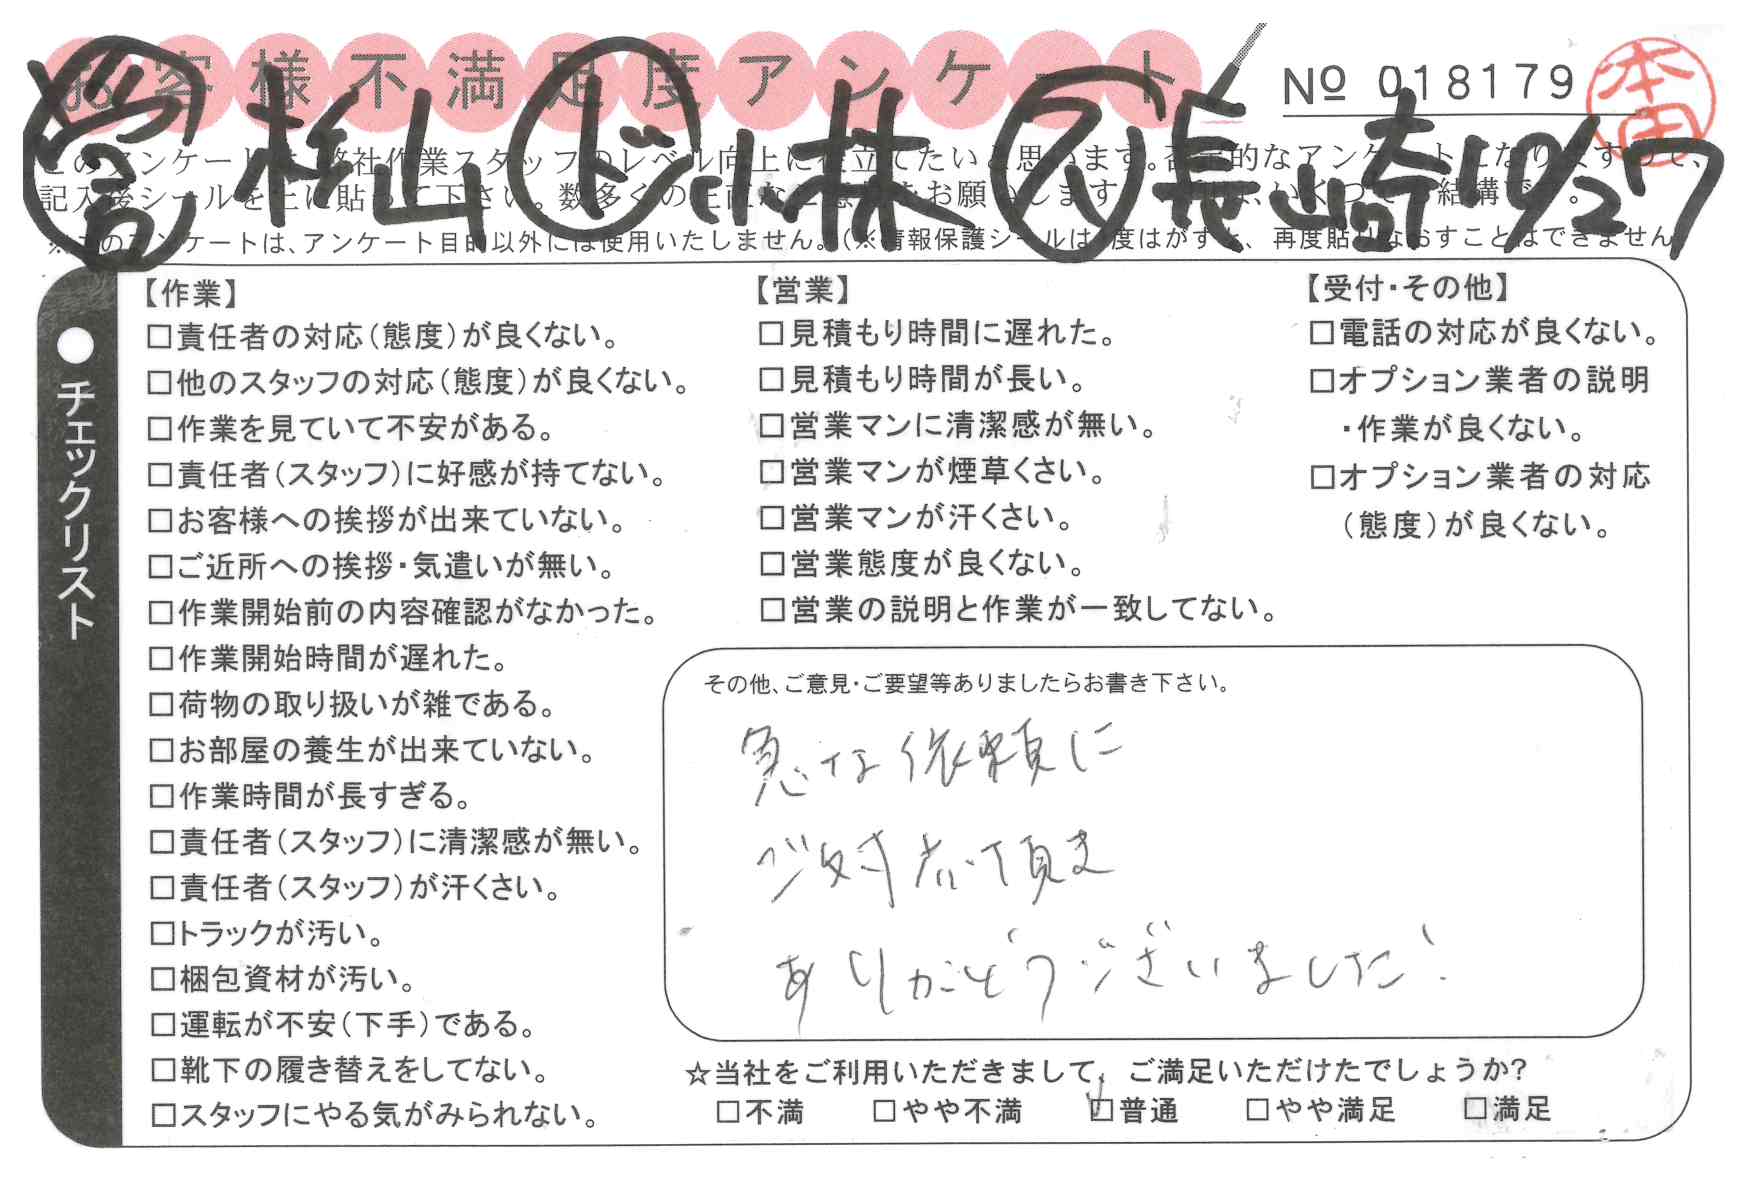 お客様不満足度アンケート
№ 018179
本田
営 杉山 ド 小林 ス 長崎 10/27
このアンケートは、弊社作業スタッフのレベル向上に役立てたいと思います。否定的なアンケートになりますので、
記入後シールを上に貼って下さい。数多くの正直なご意見をお願いします。 いくつでも結構です。
※このアンケートは、アンケート目的以外には使用いたしません。(※情報保護シールは1度はがすと、再度貼りなおすことはできません。
●チェックリスト
【作業】
□責任者の対応(態度)が良くない。
□他のスタッフの対応(態度)が良くない。
□作業を見ていて不安がある。
□責任者(スタッフ)に好感が持てない。
□お客様への挨拶が出来ていない。
□ご近所への挨拶・気遣いが無い。
□作業開始前の内容確認がなかった。
□作業開始時間が遅れた。
□荷物の取り扱いが雑である。
□お部屋の養生が出来ていない。
□作業時間が長すぎる。
□責任者(スタッフ)に清潔感が無い。
□責任者(スタッフ)が汗くさい。
□トラックが汚い。
□梱包資材が汚い。
□運転が不安(下手)である。
□靴下の履き替えをしてない。
□スタッフにやる気がみられない。
【営業】
□見積もり時間に遅れた。
□見積もり時間が長い。
□営業マンに清潔感が無い。
□営業マンが煙草くさい。
□営業マンが汗くさい。
□営業態度が良くない。
□営業の説明と作業が一致してない。
【受付・その他】
□電話の対応が良くない。
□オプション業者の説明
・作業が良くない。
□オプション業者の対応
(態度)が良くない。
その他、ご意見・ご要望等ありましたらお書き下さい。
急な依頼に
ご対応頂き
ありがとうございました!
☆当社をご利用いただきまして、ご満足いただけたでしょうか?
□不満 □やや不満 ☑普通 □やや満足 □満足